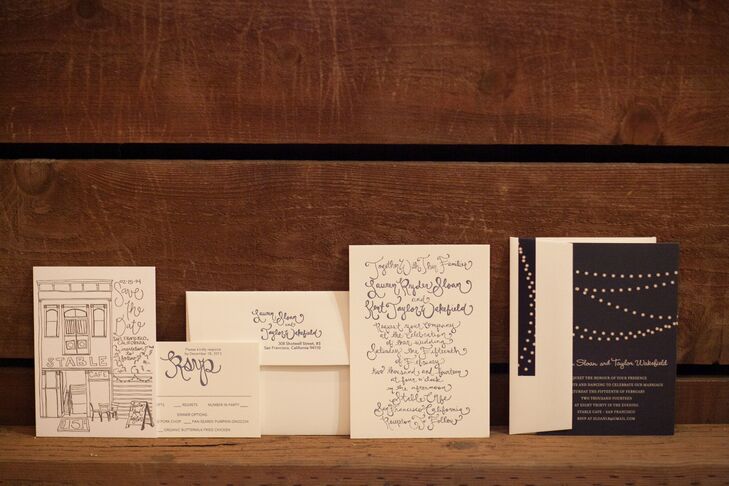 02-15-14
Save
the
Date
San Francisco,
California
STABLE
CAFE
Please kindly respond
by December 28, 2013
Rsvp
REGRETS NUMBER IN PARTY
DINNER OPTIONS
PORK CHOP PAN-SEARED PUMPKIN GNOCCHI
ORGANIC BUTTERMILK FRIED CHICKEN
Lauren Sloan
and
Taylor Wakefield
308 Shotwell Street, #3
San Francisco, California 94110
Together With Their Families
Lauren Ryder Sloan
and
Kent Taylor Wakefield
Request your Company
at the Celebration
of their wedding
Saturday the Fifteenth
of February
two thousand and fourteen
at four o'clock
in the afternoon
Stable Cafe
San Francisco California
Reception to Follow
Sloan and Taylor Wakefield
REQUEST THE HONOUR OF YOUR PRESENCE
AND DANCING TO CELEBRATE OUR MARRIAGE
THE FIFTEENTH OF FEBRUARY
TWO THOUSAND FOURTEEN
AT EIGHT THIRTY IN THE EVENING
STABLE CAFE - SAN FRANCISCO
RSVP AT